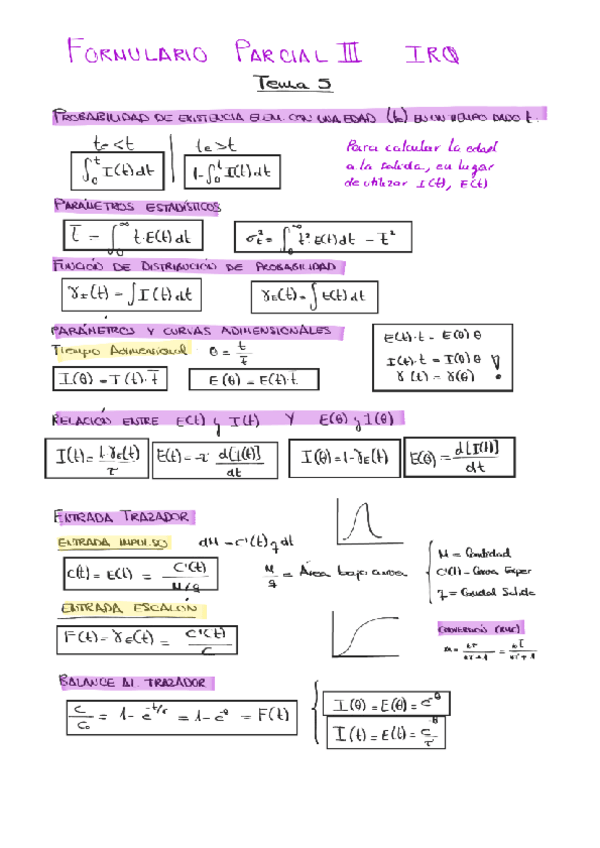 FORMULARIO PARCIAL III IRQ
Tema 5
PROBABILIDAD DE EXISTENCIA ELEM. CON UNA EDAD (te) EN UN TIEMPO DADO t.
te < t | te > t
∫₀ᵗ I(t)dt | 1-∫₀ᵗ I(t)dt
Para calcular la edad
a la salida, en lugar
de utilizar I(t), E(t)
PARÁMETROS ESTADÍSTICOS
t̄ = ∫₀^∞ t·E(t)dt σₜ² = ∫₀^∞ t²·E(t)dt - t̄²
FUNCIÓN DE DISTRIBUCIÓN DE PROBABILIDAD
γI(t) = ∫I(t)dt γE(t) = ∫E(t)dt
PARÁMETROS Y CURVAS ADIMENSIONALES
Tiempo Adimensional θ = t/t̄
I(θ) = I(t)·t̄ E(θ) = E(t)·t̄
E(t)·t = E(θ)θ
I(t)·t = I(θ)θ
γ(t) = γ(θ) !
RELACIÓN ENTRE E(t) y I(t) Y E(θ) y I(θ)
I(t) = 1-γE(t)/τ E(t) = -τ d[I(t)]/dt I(θ) = 1-γE(t) E(θ) = -d[I(t)]/dt
ENTRADA TRAZADOR
ENTRADA IMPULSO dM = C'(t) q dt
C(t) = E(t) = C'(t)/M/q M/q = Área bajo curva
M = Cantidad
C'(t) = Curva Exper
q = Caudal Salida
ENTRADA ESCALÓN
F(t) = γE(t) = C'(t)/C
CONVERSIÓN (RMC)
BALANCE AL TRAZADOR
C/C₀ = 1 - e^-t/τ = 1 - e^-θ = F(t)
I(θ) = E(θ) = e^-θ
I(t) = E(t) = e^-θ/τ